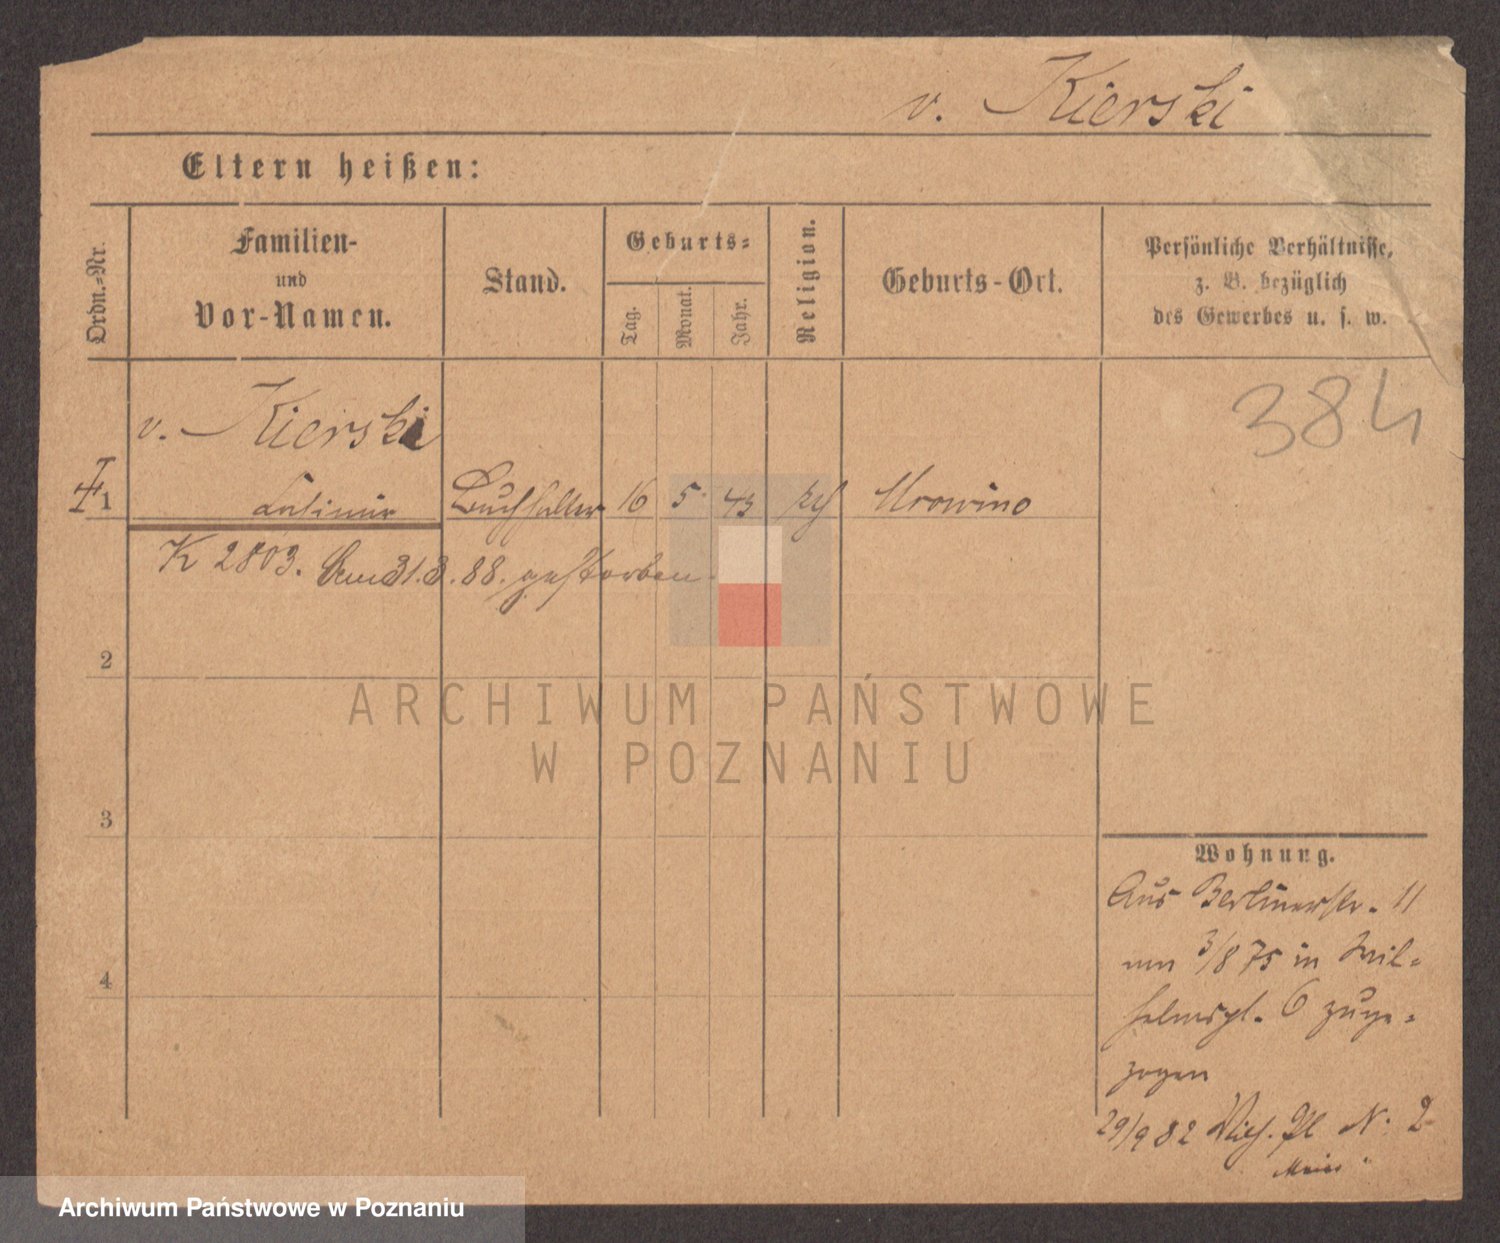 v. Kierski
Eltern heißen:
Ordn.-Nr.
Familien-
und
Vor-Namen.
Stand.
Geburts-
Tag.
Monat.
Jahr.
Religion.
Geburts-Ort.
Persönliche Verhältnisse,
z. B. bezüglich
des Gewerbes u. s. w.
384
v. Kierski
1 Casimir Buchhalter 16 5 43 kth Mrowino
K 2803. 31.3.88. gestorben.
2
3
4
Wohnung.
Aus Berlinerstr. 11
3/8 75 in Wil-
helmspl. 6 zuge-
zogen
29/9 82 Pl N. 2
ARCHIWUM PAŃSTWOWE
W POZNANIU
Archiwum Państwowe w Poznaniu